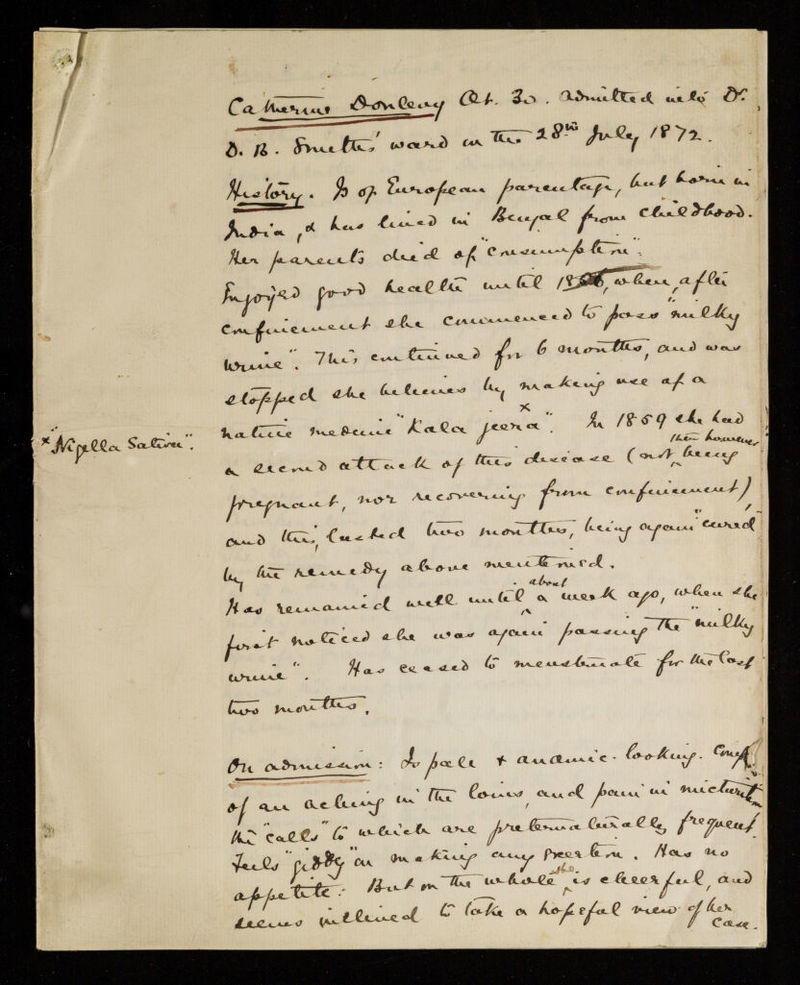 Catherine Donleavy Æt. 30. Admitted into Dr.
D. B. Smith's ward on the 28th July 1872.
History. Is of European parentage, but born in
India, & has lived in Bengal from childhood.
Her parents died of "consumption".
Enjoyed good health until 1866, when, after
confinement she commenced to pass "milky
urine". This continued for 6 months, and was
stopped she believes by making use of a
native medicine "Kala jeera" x. In 1869 she had
x "Nigella Sativa".
a second attack of this disease (not then however being
pregnant, nor recovering from confinement),
and this, lasted two months, being again "cured"
by the remedy above mentioned.
Has remained well until about a week ago, when she
first noticed she was again passing the "milky
urine". Has ceased to menstruate for the last
two months.
On admission: Is pale & anæmic-looking. Comp
of an aching in the loins, and pain in micturition
the "calls" to which are preternaturally frequent.
Feels "giddy" on making any exertion. Has no
appetite. But on the whole she is cheerful, and
seems inclined to take a hopeful view of her
case.